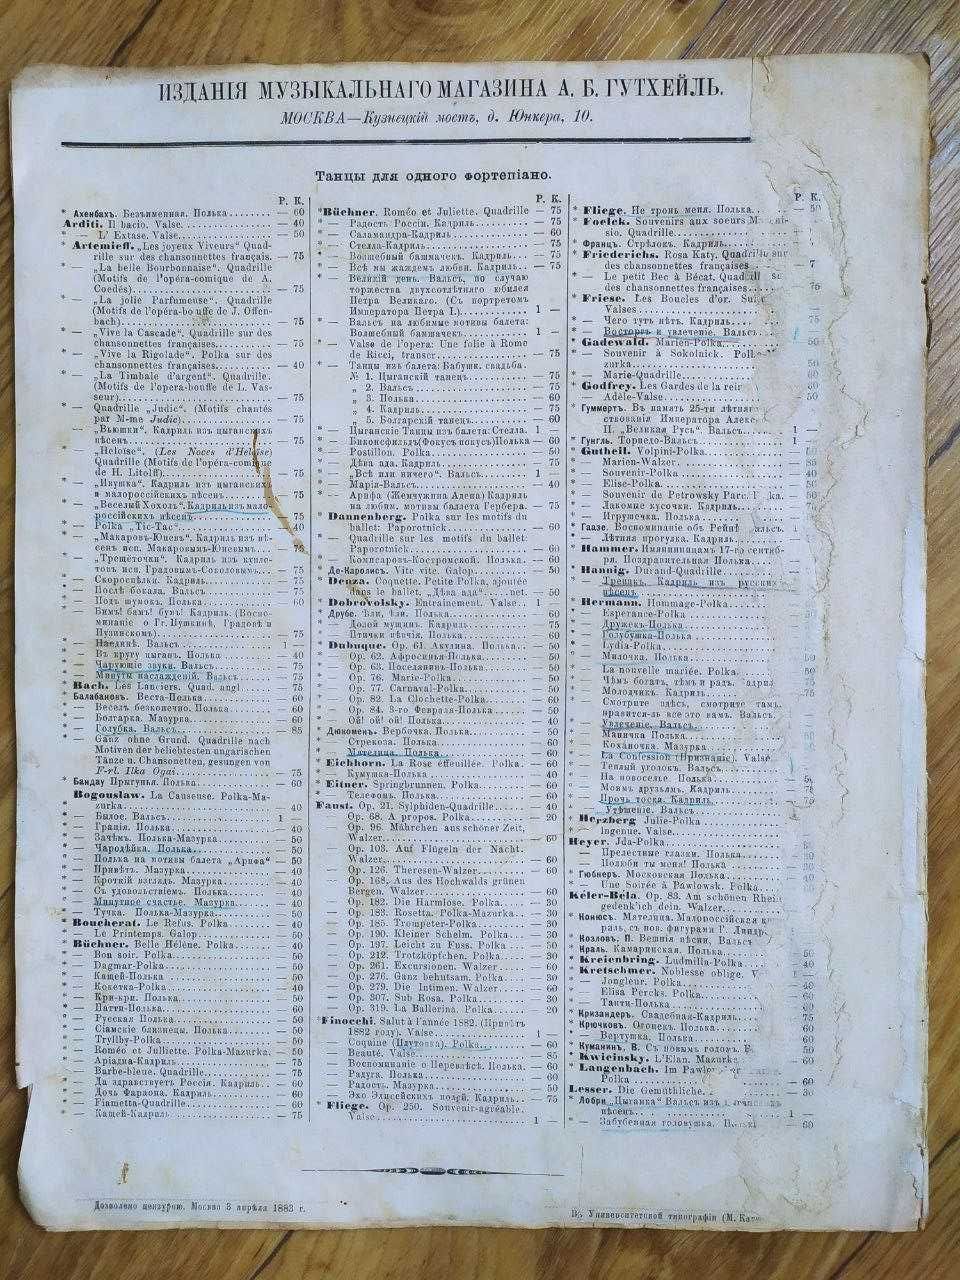 ИЗДАНІЯ МУЗЫКАЛЬНАГО МАГАЗИНА А. Б. ГУТХЕЙЛЬ.
МОСКВА—Кузнецкій мостъ, д. Юнкера, 10.
Танцы для одного Фортепіано.
Р. К.
* Ахенбахъ. Безъименная. Полька — 60
Arditi. Il bacio. Valse. — 40
L' Extase. Valse. — 50
* Artemieff. „Les joyeux Viveurs“ Quad-
rille sur des chansonnettes français. — 75
* — „La belle Bourbonnaise“. Quadrille
(Motifs de l'opéra-comique de A.
Coedès) — 75
* — „La jolie Parfumeuse“. Quadrille
(Motifs de l'opéra-bouffe de J. Offen-
bach) 75
* — „Vive la Cascade“. Quadrille sur des
chansonnettes françaises. 75
* — „Vive la Rigolade“. Polka sur des
chansonnettes françaises. — 40
* — „La Timbale d'argent“. Quadrille.
(Motifs de l'opera-bouffe de L. Vas-
seur) 75
* — Quadrille „Judic“. (Motifs chantés
par M-me Judic) 75
* — „Вьюшки“. Кадриль изъ цыганскихъ
пѣсенъ 75
* — „Heloïse“. (Les Noces d'Heloïse)
Quadrille (Motifs de l'opéra-comique
de H. Litolff). — 75
* — „Ивушка“. Кадриль изъ цыганскихъ
и малороссійскихъ пѣсенъ 75
* — „Веселый Хохолъ“. Кадриль изъ мало-
россійскихъ пѣсенъ — 75
* — Polka „Tic-Tac“. 40
* — „Макаровъ-Юневъ“. Кадриль изъ пѣ-
сенъ исп. Макаровымъ-Юневымъ. 75
* — „Трещёточки“. Кадриль изъ купле-
товъ исп. Градовымъ-Соколовымъ. — 75
* — Скороспѣлки. Кадриль. — 75
* — Послѣ бокала. Вальсъ 75
* — Подъ шумокъ. Полька 60
* — Бимъ! бамъ! бумъ! Кадриль (Воспо-
минаніе о Гг. Пушкинѣ, Градовѣ и
Пузинскомъ). 75
* — Наединѣ. Вальсъ 1 —
* — Въ кругу цыганъ. Полька 40
* — Чарующіе звуки. Вальсъ 75
* — Минуты наслажденій. Вальсъ 75
Bach. Les Lanciers. Quad. angl. — 75
* Балабановъ. Веста-Полька — 60
* — Веселъ безконечно. Полька — 60
* — Болгарка. Мазурка — 60
* — Голубка. Вальсъ — 85
* — Ganz ohne Grund. Quadrille nach
Motiven der beliebtesten ungarischen
Tänze u. Chansonetten, gesungen von
F-rl. Ilka Ogai — 75
* Бандау Прыгунья. Полька — 60
Bogouslaw. La Causeuse. Polka-Ma-
zurka — 40
* — Былое. Вальсъ 1 —
* — Грація. Полька — 40
* — Зачѣмъ. Полька-Мазурка — 50
* — Чародѣйка. Полька — 50
* — Полька на мотивы балета „Арифа“ — 50
* — Привѣтъ. Мазурка — 40
* — Кроткій взглядъ. Мазурка — 40
* — Съ удовольствіемъ. Полька — 40
* — Минутное счастье. Мазурка — 40
* — Тучка. Полька-Мазурка — 50
* Boucherat. Le Refus. Polka — 40
Le Printemps. Galop — 50
* Büchner. Belle Hélène. Polka — 40
* — Bon soir. Polka — 50
* — Dagmar-Polka — 40
* — Кащей-Полька — 50
* — Кокетка-Polka — 40
* — Кри-кри. Полька — 50
* — Патти-Полька — 60
* — Русская Полька — 50
* — Сіамскіе близнецы. Полька — 50
* — Tryllby-Polka — 50
* — Roméo et Julliette. Polka-Mazurka. — 50
* — Аріадна-Кадриль — 75
* — Barbe-bleue. Quadrille — 75
* — Да здравствуетъ Россія. Кадриль — 60
* — Дочь Фараона. Кадриль — 60
* — Fiametta-Quadrille — 60
* — Кащей-Кадриль — 75
Р. К.
*Büchner. Roméo et Juliette. Quadrille — 75
* — Радость Россіи. Кадриль — 75
* — Саламандра-Кадриль — 60
* — Стелла-Кадриль — 75
* — Волшебный башмачекъ. Кадриль — 75
* — Всѣ мы жаждемъ любви. Кадриль — 75
* — Великій день. Вальсъ, по случаю
торжества двухсотлѣтняго юбилея
Петра Великаго. (Съ портретомъ
Императора Петра I.) 1 —
* — Вальсъ на любимые мотивы балета:
Волшебный башмачекъ 1 —
* — Valse de l'opera: Une folie à Rome
de Ricci, transcr. — 75
* — Танцы изъ балета: Бабушк. свадьба.
№ 1. Цыганскій танецъ — 75
„ 2. Вальсъ — 75
„ 3. Полька — 60
„ 4. Кадриль — 75
„ 5. Болгарскій танецъ — 60
* — Цыганскіе Танцы изъ балета: Стелла. 1 —
* — Биконсфильдъ (Фокусъ покусъ) Полька — 60
* — Postillon. Polka — 50
* — Дѣва ада. Кадриль — 75
* — „Всѣ или ничего“. Вальсъ 1 —
* — Маріа-Вальсъ — 40
* — Арифа (Жемчужина Адена) Кадриль
на любим. мотивы баллета Гербера. — 75
* Dannenberg. Polka sur les motifs du
ballet: Paporotnick — 60
* — Quadrille sur les motifs du ballet
Paporotnick — 60
* — Комисаровъ-Костромской. Полька — 60
* Де-Каролисъ. Vite vite. Galop — 50
* Denza. Coquette. Petite Polka, ajoutée
dans le ballet. „Дѣва ада“ net. — 50
* Dobrovolsky. Entrainement. Valse 1 —
* Друбе. Ѣзи, Ѣзи. Полька — 60
* — Долой мущинъ. Кадриль 75
* — Птички пѣвчія. Полька — 60
* Dubuque. Op. 61. Акулина. Полька — 50
* — Op. 62. Афросинья-Полька — 50
* — Op. 63. Поселянинъ-Полька — 50
* — Op. 76. Marie-Polka — 50
* — Op. 77. Carnaval-Polka — 50
* — Op. 82. La Clochette-Polka — 60
* — Op. 84. 3-го Февраля-Полька — 50
* — Ой! ой! ой! Полька — 40
* Дюкоменъ. Вербочка. Полька — 50
* — Стрекоза. Полька — 60
* — Мятелица. Полька — 60
* Eichhorn. La Rose éffeuillée. Polka — 60
* — Кумушка-Полька — 40
* Eitner. Springbrunnen. Polka — 60
* — Телефонъ. Полька — 60
Faust. Op. 21. Sylphiden-Quadrille — 40
* — Op. 68. A propos. Polka — 20
* — Op. 96. Mährchen aus schöner Zeit,
Walzer — 60
* — Op. 103. Auf Flügeln der Nacht.
Walzer — 60
* — Op. 126. Theresen-Walzer — 60
* — Op. 168. Aus des Hochwalds grünen
Bergen. Walzer — 60
* — Op. 182. Die Harmlose. Polka — 30
* — Op. 183. Rosetta. Polka-Mazurka — 30
* — Op. 185. Trompeter-Polka — 30
* — Op. 190. Kleiner Schelm. Polka — 30
* — Op. 197. Leicht zu Fuss. Polka — 50
* — Op. 212. Trotzköpfchen. Polka — 30
* — Op. 261. Excursionen. Walzer — 60
* — Op. 276. Ganz behutsam. Polka — 30
* — Op. 279. Die Intimen. Walzer — 60
* — Op. 307. Sub Rosa. Polka — 30
* — Op. 319. La Ballerina. Polka — 20
*Finocchi. Salut à l'année 1882. (Привѣтъ
1882 году). Valse 1 —
Coquine (Плутовка). Polka — 60
* — Beauté. Valse — 85
* — Воспоминаніе о Перевѣсѣ. Полька. — 60
* — Радуга. Полька — 60
* — Радость. Мазурка — 50
* — Эхо Элисейскихъ полей. Кадриль — 75
* Fliege. Op. 250. Souvenir-agréable.
Valse 1 —
Р. К.
* Fliege. Не тронь меня. Полька — 50
* Foelck. Souvenirs aux soeurs
sio. Quadrille
* Францъ. Стрѣлокъ. Кадриль
* Friederichs. Rosa Katy. Quadrille sur
des chansonnettes françaises
* — Le petit Bec à Bécat. Quadrille
des chansonnettes françaises 75
* Friese. Les Boucles d'or.
Valses
* — Чего тутъ нѣтъ. Кадриль 75
* — Восторгъ и увлеченіе. Вальсъ
* Gadewald. Marien-Polka 50
* — Souvenir à Sokolnick.
zurka
* — Marie-Quadrille 60
* Godfrey. Les Gardes de la reine
* — Adèle-Valse 50
* Гуммертъ. Въ память 25-ти
ствованія Императора
II. „Великая Русь“. Вальсъ 1 —
* Гунгль. Торпедо-Вальсъ 1
* Gutheil. Volpini-Polka
* — Marien-Walzer
* — Souvenir-Polka 40
* — Elise-Polka 50
* — Souvenir de Petrowsky Parc.
* — Лакомые кусочки. Кадриль
* — Игрушечки. Полька
* Гаазе. Воспоминаніе объ
* — Лѣтняя прогулка. Кадриль
* Hammer. Имянинницамъ 17-го сентяб-
ря. Поздравительная Полька
* Hannig. Durand-Quadrille
* — Трепакъ. Кадриль изъ русскихъ
пѣсенъ
* Hermann. Hommage-Polka 50
* — Esperance-Polka
* — Дружекъ-Полька
* — Голубушка-Полька
* — Lydia-Polka
* — Милочка. Полька 50
* — La nouvelle mariée. Polka 50
* — Чѣмъ богатъ, тѣмъ и радъ.
* — Молодчикъ. Кадриль 75
* — Смотрите здѣсь, смотрите тамъ.
нравится-ль все это вамъ. Вальсъ.
* — Увлеченіе. Вальсъ
* — Маничка Полька
* — Коханочка. Мазурка
* — La Confession (Признаніе). Valse.
* — Теплый уголокъ. Вальсъ
* — На новоселье. Полька
* — Моимъ друзьямъ. Кадриль
* — Прочь тоска. Кадриль
* — Утѣшеніе. Вальсъ
* Herzberg. Julie-Polka
* — Ingenue. Valse
Heyer. Jda-Polka
* — Прелестные глазки. Полька
* — Полюби ты меня! Полька
* Гюбнеръ. Московская Полька
* — Une Soirée à Pawlowsk. Polka
Kéler-Béla. Op. 83. Am schönen Rhein
gedenk'ich dein. Walzer
* Конюсъ. Мятелица. Малороссійская
раль, съ нов. фигурами Г.
* Козловъ, П. Вешнія пѣсни, Вальсъ
* Краль. Камаринская. Полька
* Kreienbring. Ludmilla-Polka
* Kretschmer. Noblesse oblige.
* — Jongleur. Polka 40
* — Elisa Percks. Polka 60
* — Танти-Полька 60
* Кризандеръ. Свадебная-Кадриль 75
* Крючковъ. Огонекъ. Полька
* — Вертушка. Полька — 60
* Куманинъ, В. Съ новымъ годомъ. 50
* Kwicinsky. L'Elan. Mazurka
* Langenbach. Im
Polka — 60
Lesser. Die Gemüthliche. — 30
* Лобри „Цыганка“ Вальсъ изъ
пѣсенъ 1 —
* — Забубенная головушка. — 60
Дозволено цензурою. Москва 3 апрѣля 1883 г.
Въ Университетской типографіи (М.